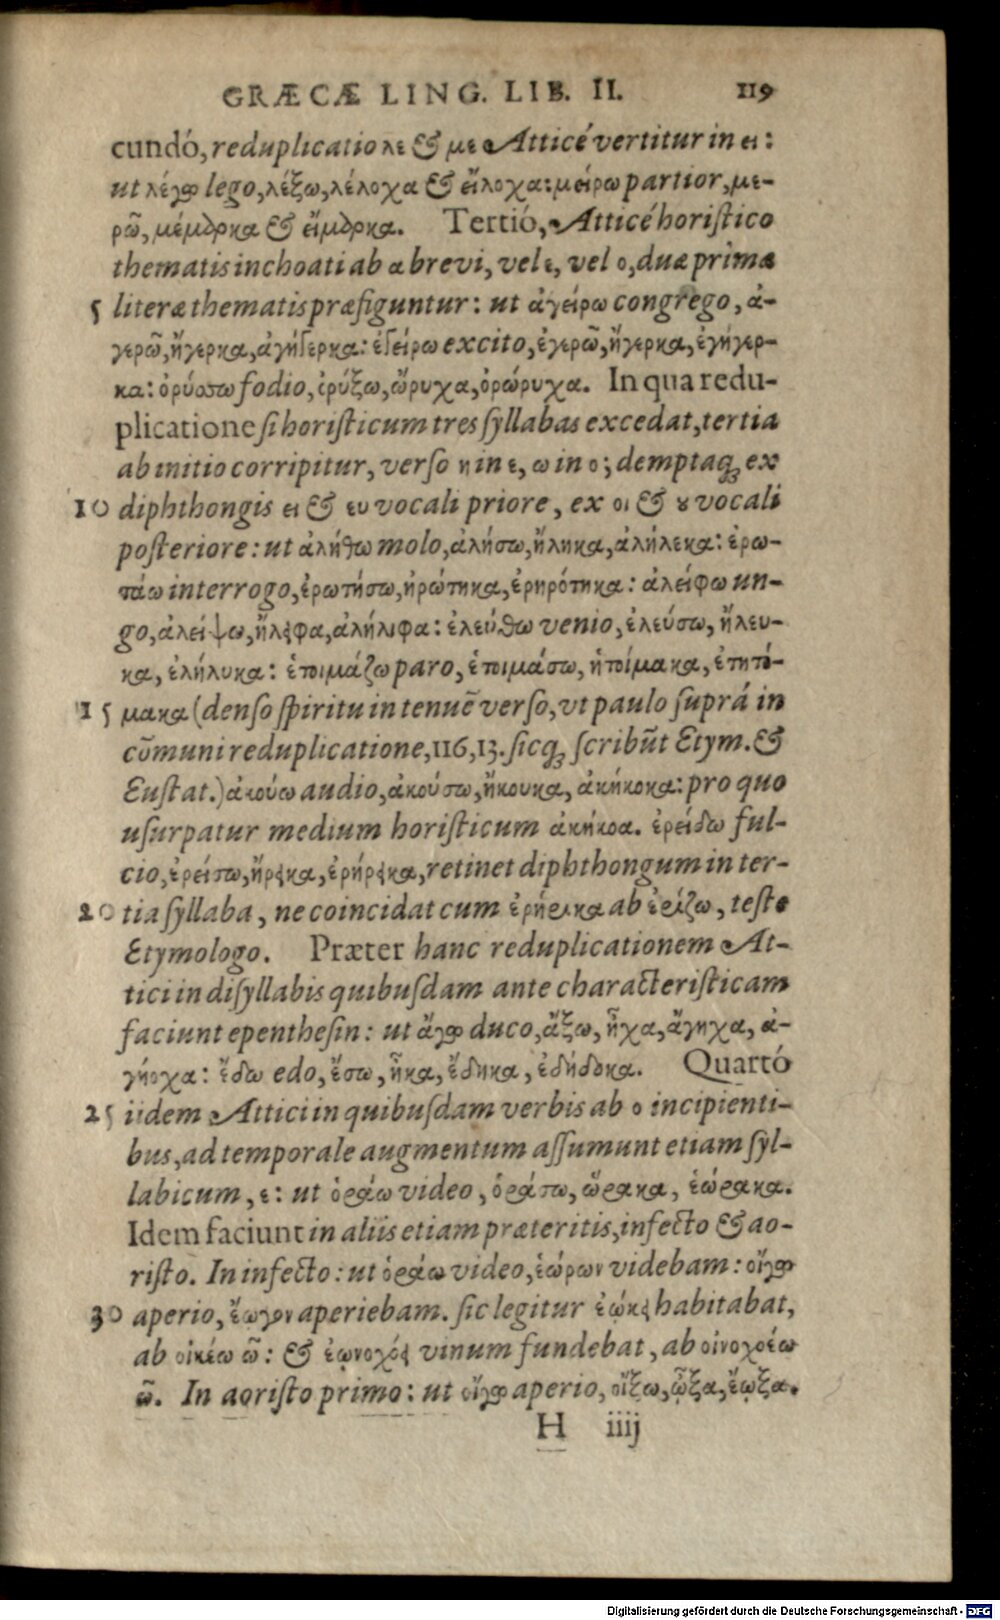 GRÆCÆ LING. LIB. II. 119
cundó, reduplicatio λε & με Atticé vertitur in ει:
ut λέγω lego, λέξω, λέλοχα & εἴλοχα: μείρω partior, με-
ρῶ, μέμορκα & εἴμορκα. Tertió, Atticé horiſtico
thematis inchoati ab α brevi, vel ε, vel ο, duæ primæ
5 literæ thematis præfiguntur: ut ἀγείρω congrego, ἀ-
γερῶ, ἤγερκα, ἀγήγερκα: ἐγείρω excito, ἐγερῶ, ἤγερκα, ἐγήγερ-
κα: ὀρύσσω fodio, ὀρύξω, ὤρυχα, ὀρώρυχα. In qua redu-
plicatione ſi horiſticum tres ſyllabas excedat, tertia
ab initio corripitur, verſo η in ε, ω in ο; demptaq́; ex
10 diphthongis ει & ευ vocali priore, ex οι & ου vocali
poſteriore: ut ἀλήθω molo, ἀλήσω, ἤληκα, ἀλήλεκα: ἐρω-
τάω interrogo, ἐρωτήσω, ἠρώτηκα, ἐρηρότηκα: ἀλείφω un-
go, ἀλείψω, ἤλειφα, ἀλήλιφα: ἐλεύθω venio, ἐλεύσω, ἤλευ-
κα, ἐλήλυκα: ἑτοιμάζω paro, ἑτοιμάσω, ἡτοίμακα, ἐτητό-
15 μακα (denſo ſpiritu in tenuẽ verſo, vt paulo ſuprá in
cõmuni reduplicatione, 116, 13. ſicq́; ſcribũt Etym. &
Euſtat.) ἀκούω audio, ἀκούσω, ἤκουκα, ἀκήκοκα: pro quo
uſurpatur medium horiſticum ἀκήκοα. ἐρείδω ful-
cio, ἐρείσω, ἤρεικα, ἐρήρεικα, retinet diphthongum in ter-
20 tia ſyllaba, ne coincidat cum ἐρήρικα ab ἐρίζω, teſte
Etymologo. Præter hanc reduplicationem At-
tici in diſyllabis quibuſdam ante characteriſticam
faciunt epentheſin: ut ἄγω duco, ἄξω, ἦχα, ἄγηχα, ἀ-
γήοχα: ἔδω edo, ἔσω, ἦκα, ἔδηκα, ἐδήδοκα. Quartó
25 iidem Attici in quibuſdam verbis ab ο incipienti-
bus, ad temporale augmentum aſſumunt etiam ſyl-
labicum, ε: ut ὁράω video, ὁράσω, ὥρακα, ἑώρακα.
Idem faciunt in aliis etiam præteritis, infecto & ao-
riſto. In infecto: ut ὁράω video, ἑώρων videbam: οἴγω
30 aperio, ἔωγον aperiebam. ſic legitur ἐῴκει habitabat,
ab οἰκέω ῶ: & ἐῳνοχόει vinum fundebat, ab οἰνοχοέω
ῶ. In aoriſto primo: ut οἴγω aperio, οἴξω, ᾦξα, ἔῳξα.
H iiij
Digitalisierung gefördert durch die Deutsche Forschungsgemeinschaft - DFG